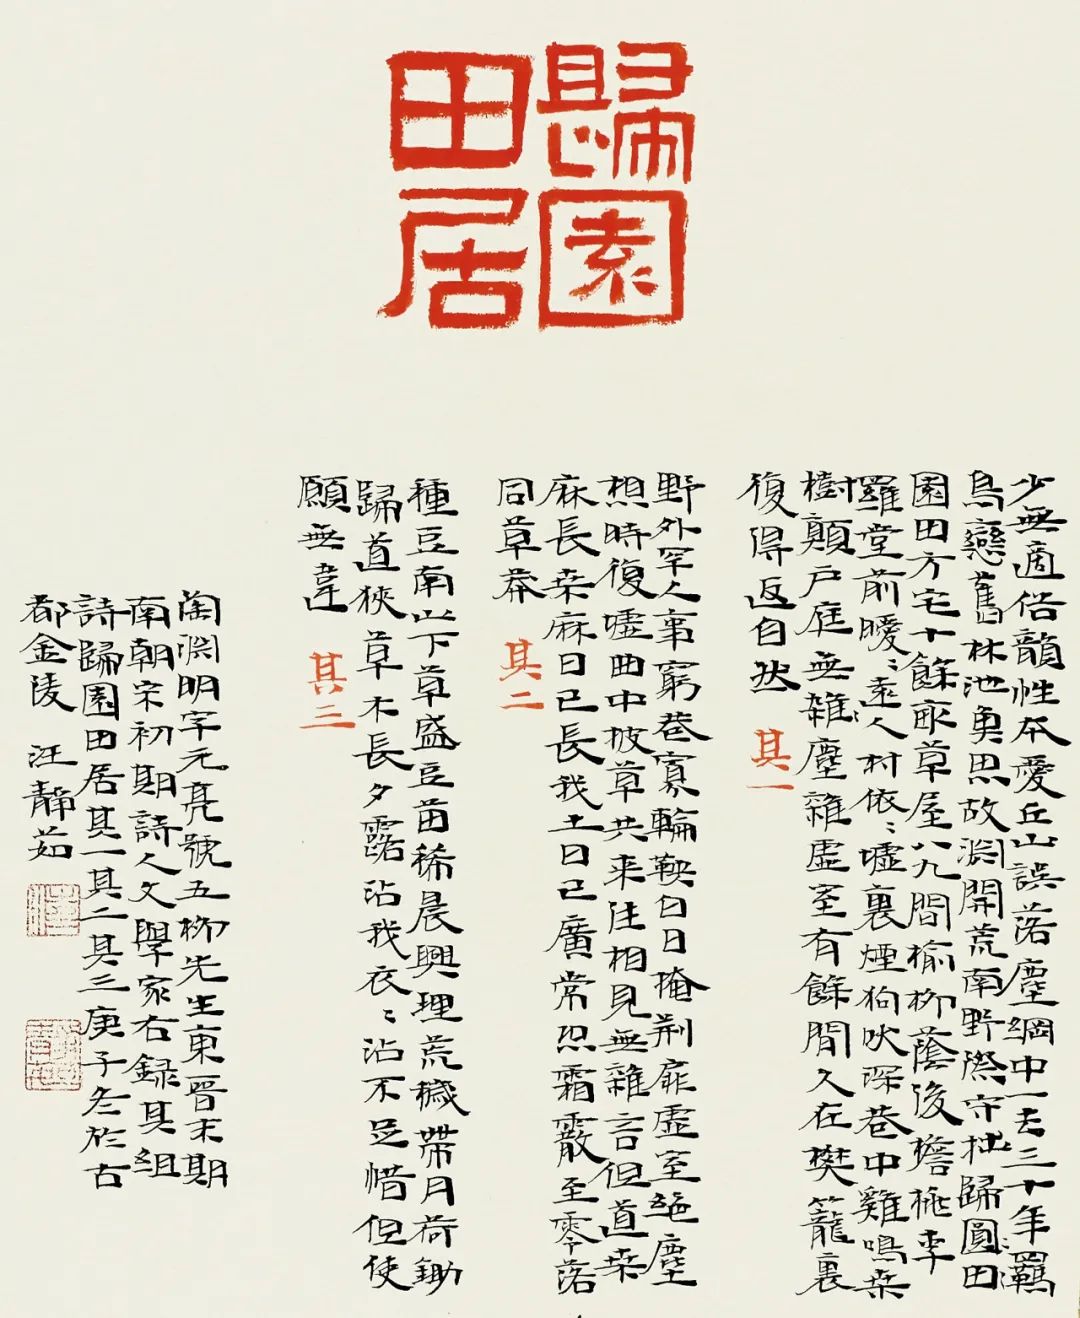 歸園
田居
少無適俗韻性本愛丘山誤落塵網中一去三十年羈
鳥戀舊林池魚思故淵開荒南野際守拙歸圓田
園田方宅十餘畝草屋八九間榆柳蔭後檐桃李
羅堂前曖〻遠人村依〻墟裏煙狗吠深巷中雞鳴桑
樹顛戶庭無雜塵雜虛室有餘閒久在樊籠裏
復得返自然 其一
野外罕人事窮巷寡輪鞅白日掩荊扉虛室絕塵
想時復墟曲中披草共来往相見無雜言但道桑
麻長桑麻日已長我土日已廣常恐霜霰至零落
同草莽 其二
種豆南山下草盛豆苗稀晨興理荒穢帶月荷鋤
歸道狹草木長夕露沾我衣〻沾不足惜但使
願無違 其三
陶淵明字元亮號五柳先生東晉末期
南朝宋初期詩人文學家右録其組
詩歸園田居其一其二其三庚子冬於古
都金陵 汪靜茹